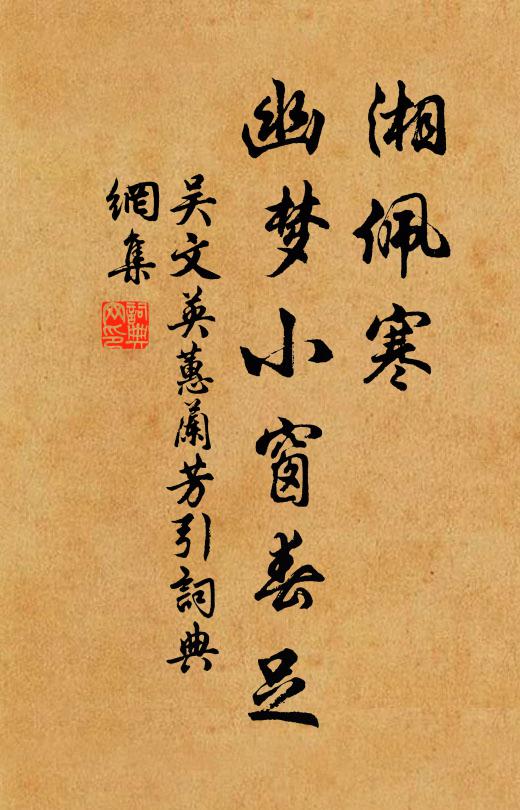 湘佩寒
幽梦小窗春足
吴文英蕙蘭芳引詞典
網集
詞典
印